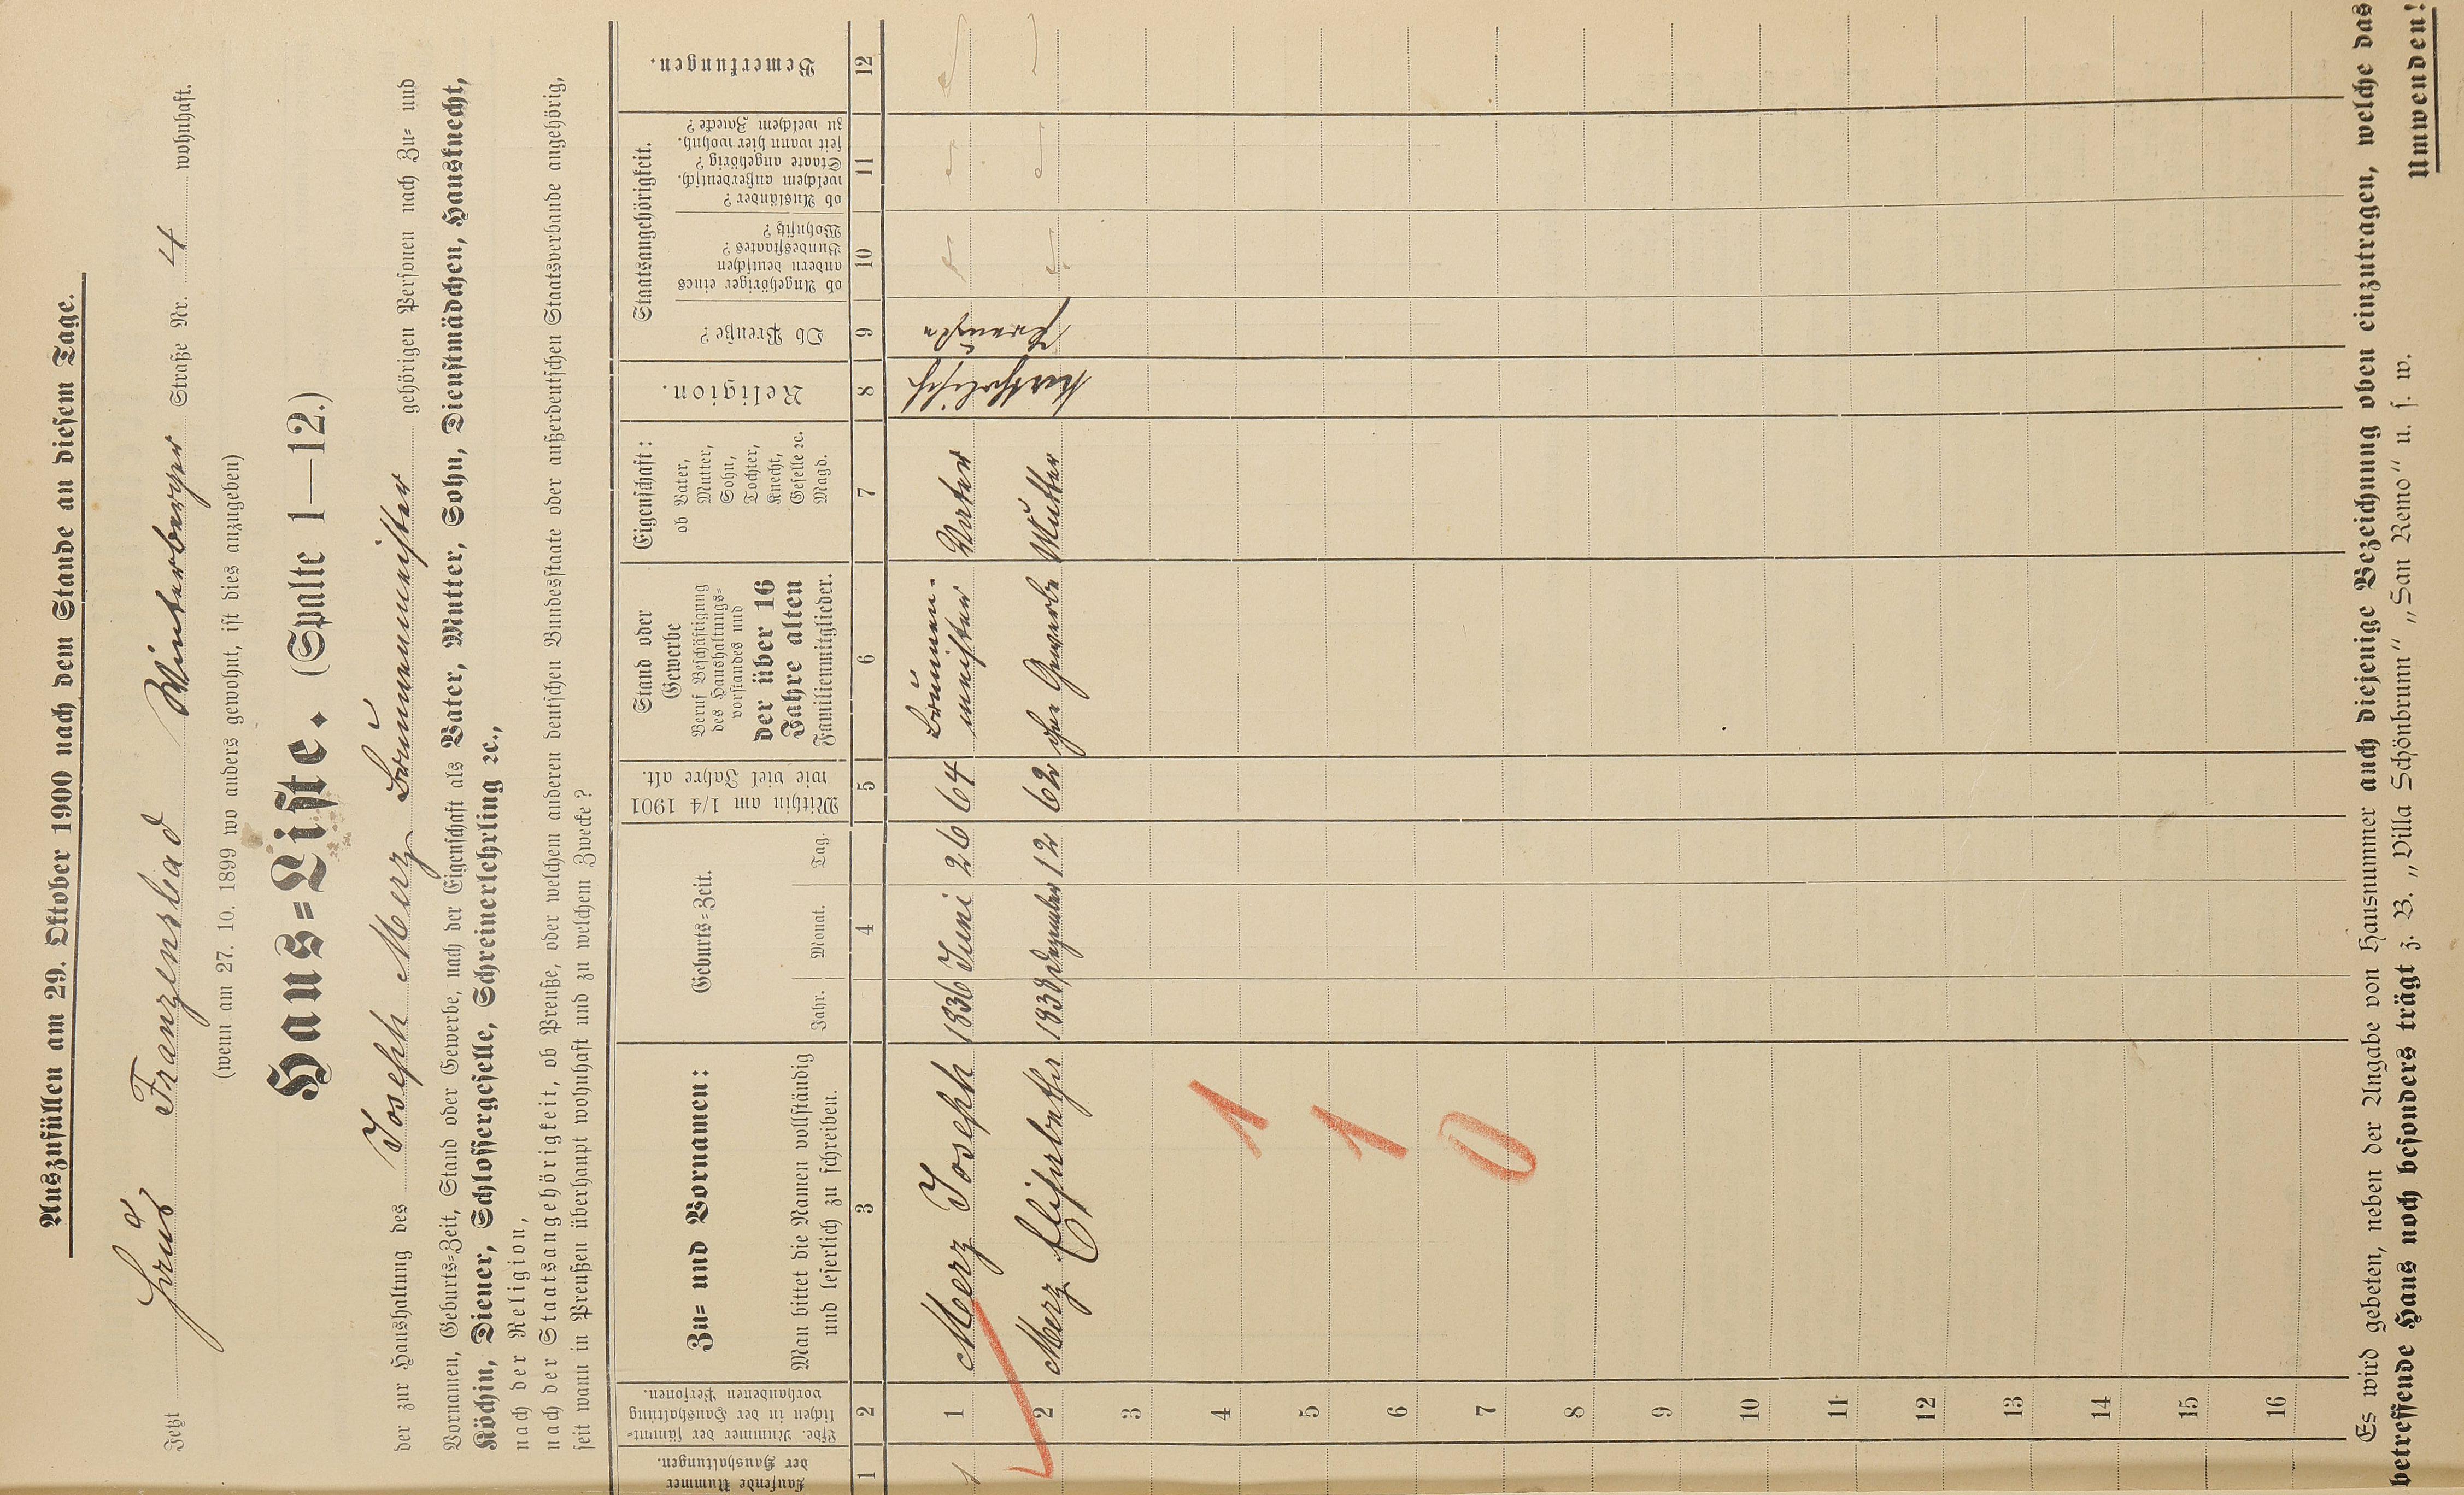 Auszufüllen am 29. Oktober 1900 nach dem Stande an diesem Tage.
Jetzt Haus Franzensbad Winterberger Straße Nr. 4 wohnhaft.
(wenn am 27. 10. 1899 wo anders gewohnt, ist dies anzugeben)
Haus=Liste. (Spalte 1—12.)
der zur Haushaltung des Joseph Merz Brunnenmeister gehörigen Personen nach Zu= und
Vornamen, Geburts=Zeit, Stand oder Gewerbe, nach der Eigenschaft als Vater, Mutter, Sohn, Dienstmädchen, Hausknecht,
Köchin, Diener, Schlossergeselle, Schreinerlehrling ꝛc.,
nach der Religion,
nach der Staatsangehörigkeit, ob Preuße, oder welchen anderen deutschen Bundesstaate oder außerdeutschen Staatsverbande angehörig,
seit wann in Preußen überhaupt wohnhaft und zu welchem Zwecke?
Laufende Nummer
der Haushaltungen.
Lfde. Nummer der sämmt=
lichen in der Haushaltung
vorhandenen Personen.
Zu= und Vornamen:
Man bittet die Namen vollständig
und leserlich zu schreiben.
Geburts=Zeit.
Jahr. Monat. Tag.
Mithin am 1/4 1901
wie viel Jahre alt.
Stand oder
Gewerbe
Beruf Beschäftigung
des Haushaltungs=
vorstandes und
der über 16
Jahre alten
Familienmitglieder.
Eigenschaft:
ob Vater,
Mutter,
Sohn,
Tochter,
Knecht,
Geselle ꝛc.
Magd.
Religion.
Staatsangehörigkeit.
Ob Preuße?
ob Angehöriger eines
andern deutschen
Bundesstaates?
Wohnsitz?
ob Ausländer?
welchem außerdeutsch.
Staate angehörig?
seit wann hier wohnh.
zu welchem Zwecke?
Bemerkungen.
1 2 3 4 5 6 7 8 9 10 11 12
1 1 Merz Joseph 1836 Juni 26 64 Brunnen-
meister Vater katholisch Preußen
2 Merz Elisabetha 1838 Dezember 12 62 ohne Gewerbe Mutter katholisch Preußen
3
4 1
5
6 1
7 0
8
9
10
11
12
13
14
15
16
Es wird gebeten, neben der Angabe von Hausnummer auch diejenige Bezeichnung oben einzutragen, welche das
betreffende Haus noch besonders trägt z. B. „Villa Schönbrunn" „San Remo" u. s. w.
Umwenden!